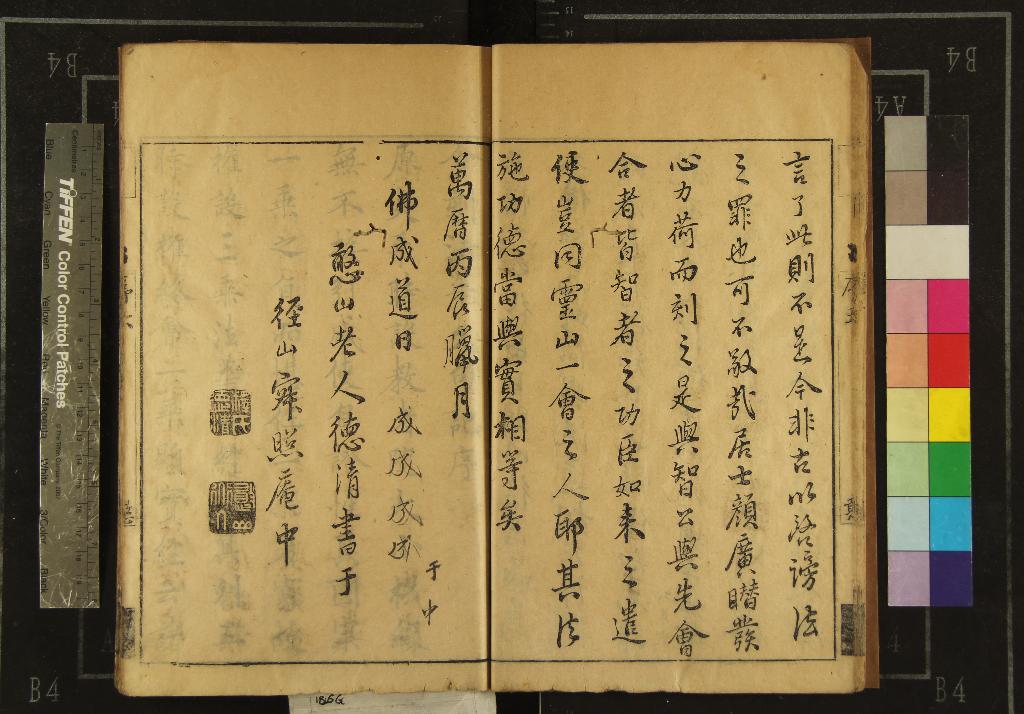 言了此則不是今非古以詒謗法
之罪也可不敬哉居士顔廣暏發
心力荷而刻之是與智公與先會
合者皆智者之功臣如来之遣
使豈同靈山一會之人耶其法
施功德當與實相等矣
萬曆丙辰臘月
佛成道日
成成成成
于
中
憨山老人德清書于
徑山寂照庵中
序五
TIFFEN Color Control Patches
Blue
Cyan
Green
Yellow
Red
Magenta
White
3/Color
Black
Centimetres
B4
B4
B4
B4
A4
A4
1856G